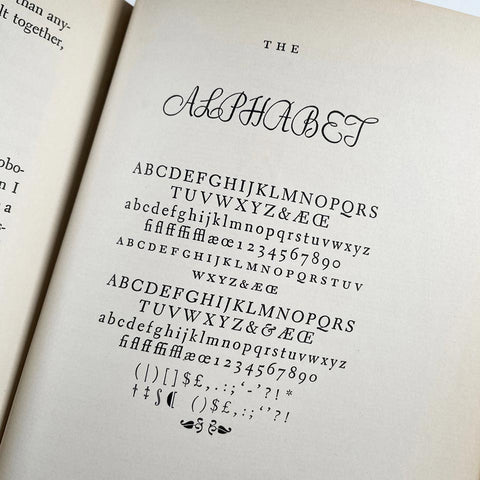 than any-
lt together,
obo-
n I
a
THE
ALPHABET
ABCDEFGHIJKLMNOPQRS
TUVWXYZ&ÆŒ
abcdefghijklmnopqrstuvwxyz
fiflffffifflæœ1234567890
ABCDEFGHIJKLMNOPQRSTUV
WXYZ&ÆŒ
ABCDEFGHIJKLMNOPQRS
TUVWXYZ&&ÆŒ
abcdefghijklmnopqrstuvwxyz
fiflffffifflæœ1234567890
(|)[]$£,.:;‘-’?!*
†‡§¶ ()$£,:;‘’?!